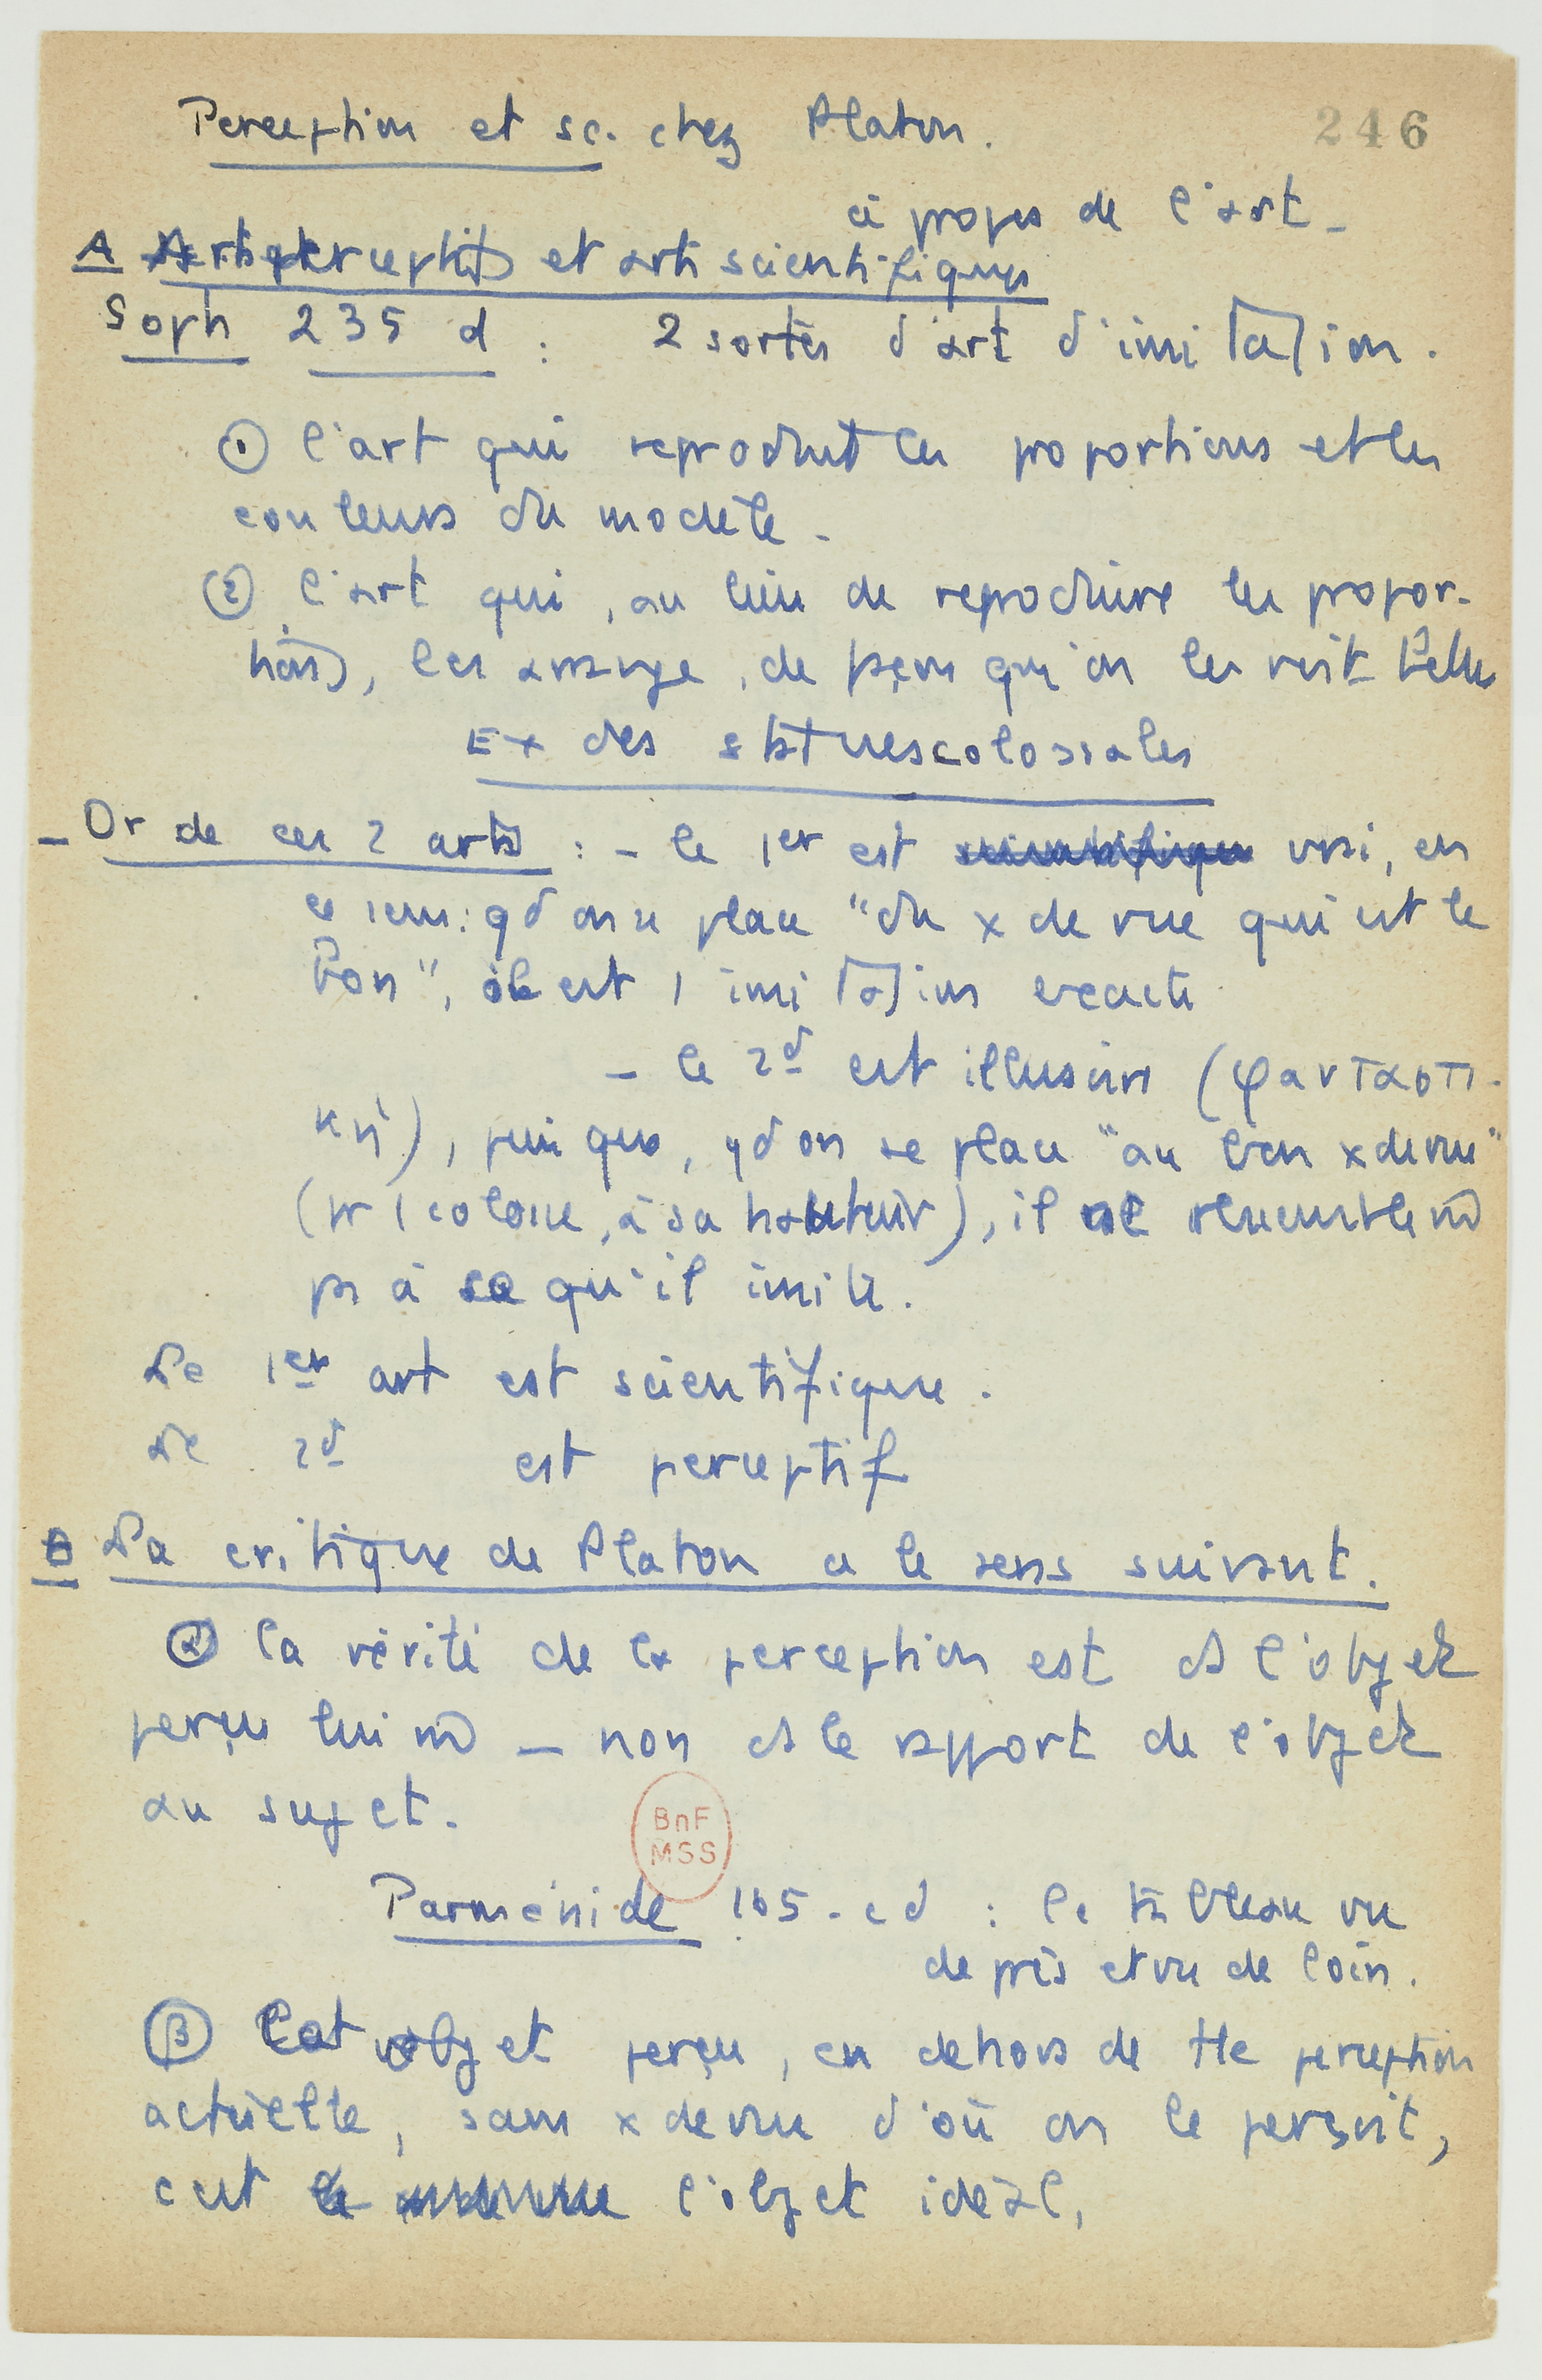 Perception et sc. chez Platon.
246
à propos de l'art -
A Arts perceptifs et arts scientifiques
Soph 235 d : 2 sortes d'art d'imitation.
① l'art qui reproduit les proportions et les
couleurs du modèle.
② l'art qui, au lieu de reproduire les propor-
tions, les arrange, de façon qu'on les voit belles
Ex des statues colossales
- Or de ces 2 arts : - le 1er est vrai, en
ce sens : qd on se place "du x de vue qui est le
bon", il est 1 imitation exacte
- le 2d est illusoire (φανταστι-
κή), puisque, qd on se place "au bon x de vue"
(pr 1 colosse, à sa hauteur), il ne ressemble m̄
ps à ce qu'il imite.
Le 1er art est scientifique.
Le 2d est perceptif
B La critique de Platon a le sens suivant.
α la vérité de la perception est ds l'objet
perçu lui m̄ - non ds le rapport de l'objet
au sujet.
Parménide 165 - cd : le tableau vu
de près et vu de loin.
β Cet objet perçu, en dehors de tte perception
actuelle, sans x de vue d'où on le perçoit,
c'est l'objet idéal,
BnF
MSS